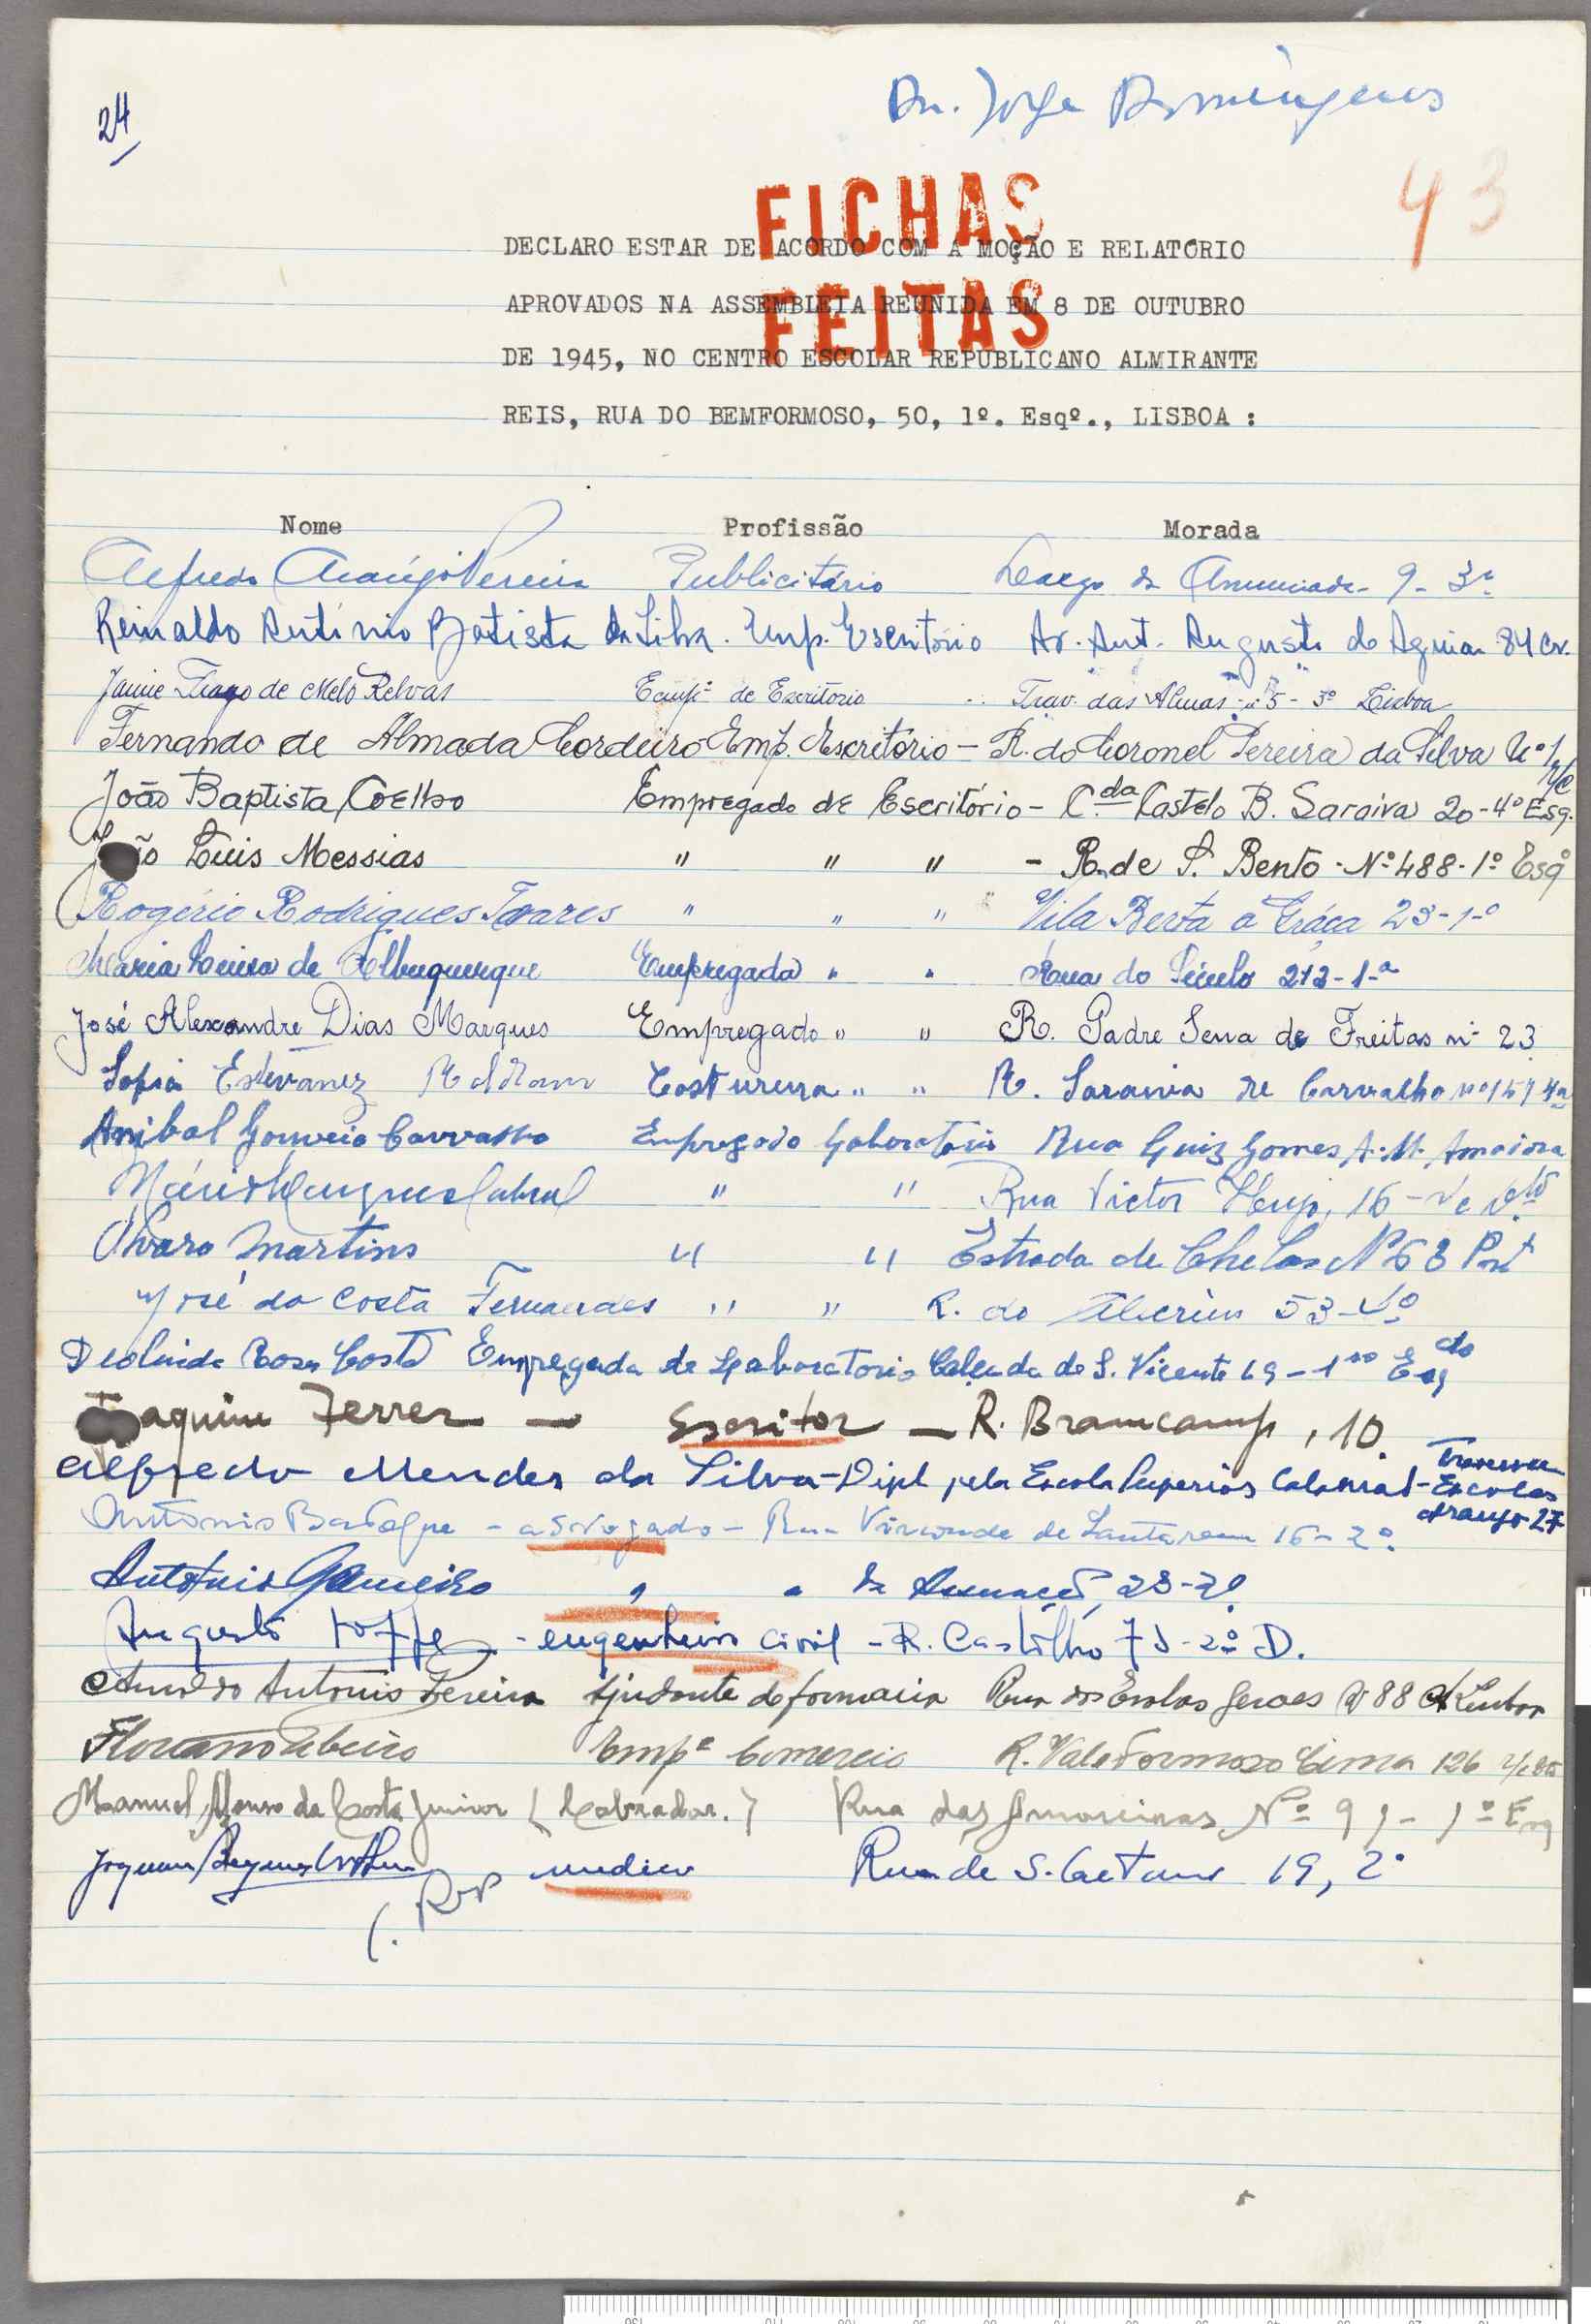 24
Dr. Jorge Domingues
43
FICHAS
FEITAS
DECLARO ESTAR DE ACORDO COM A MOÇÃO E RELATÓRIO
APROVADOS NA ASSEMBLEIA REUNIDA EM 8 DE OUTUBRO
DE 1945, NO CENTRO ESCOLAR REPUBLICANO ALMIRANTE
REIS, RUA DO BEMFORMOSO, 50, 1º. Esqº., LISBOA :
Nome Profissão Morada
Alfredo Araújo Pereira Publicitário Largo da Anunciada - 9 - 3º
Reinaldo António Batista da Silva. Emp. Escritório Av. Ant. Augusto de Aguiar 84 cv.
Jaime Tiago de Melo Relvas Empº de Escritório Trav. das Almas - nº 5 - 3º Lisboa
Fernando de Almada Cordeiro Emp. Escritório - R. do Coronel Pereira da Silva Nº 1 r/c
João Baptista Coelho Empregado de Escritório - C.da Castelo B. Saraiva 20 - 4º Esq.
João Luis Messias " " " - R. de S. Bento - Nº 488 - 1º Esqº
Rogério Rodrigues Tavares " " " Vila Berta à Graça 23 - 1-º
Maria Luisa de Albuquerque Empregada " " Rua do Século 212 - 1-º
José Alexandre Dias Marques Empregado " " R. Padre Sena de Freitas nº 23
Sofia Estevanez Costureira " " R. Saraiva de Carvalho nº 157 4º
Anibal Gouveia Carvalho Empregado Laboratório Rua Luiz Gomes A. M. Amadora
Mário Marques Cabral " " Rua Victor Hugo, 16 - r/c Dto
Alvaro Martins " " Estrada de Chelas Nº 68 Port
José da Costa Fernandes " " R. do 53
Deolinda Rosa Costa Empregada de Laboratorio Calçada de S. Vicente 69 - 1º Esq do
Joaquim Ferrer — Escritor — R. Bramcamp, 10.
Alfredo Mendes da Silva - Dipl pela Escola Superior Colonial - Travessa Escolas Araujo - 27
António - advogado - Rua Visconde de Santarem 16 - 2º
António Gameiro " " da Assunção, 23 - 2º
Augusto - engenheiro civil - R. Castilho 75 - 2º D.
Arnaldo Antonio Pereira Ajudante de farmacia Rua das Escolas Geraes Nº 88 Lisboa
Floriano Ribeiro Empº Comercio R. Vale Formoso Cima 126 r/c
Manuel Afonso da Costa Junior (Lavrador.) Rua das Amoreiras Nº 91 - 1º Esq
médico Rua de S. Caetano 19, 2º